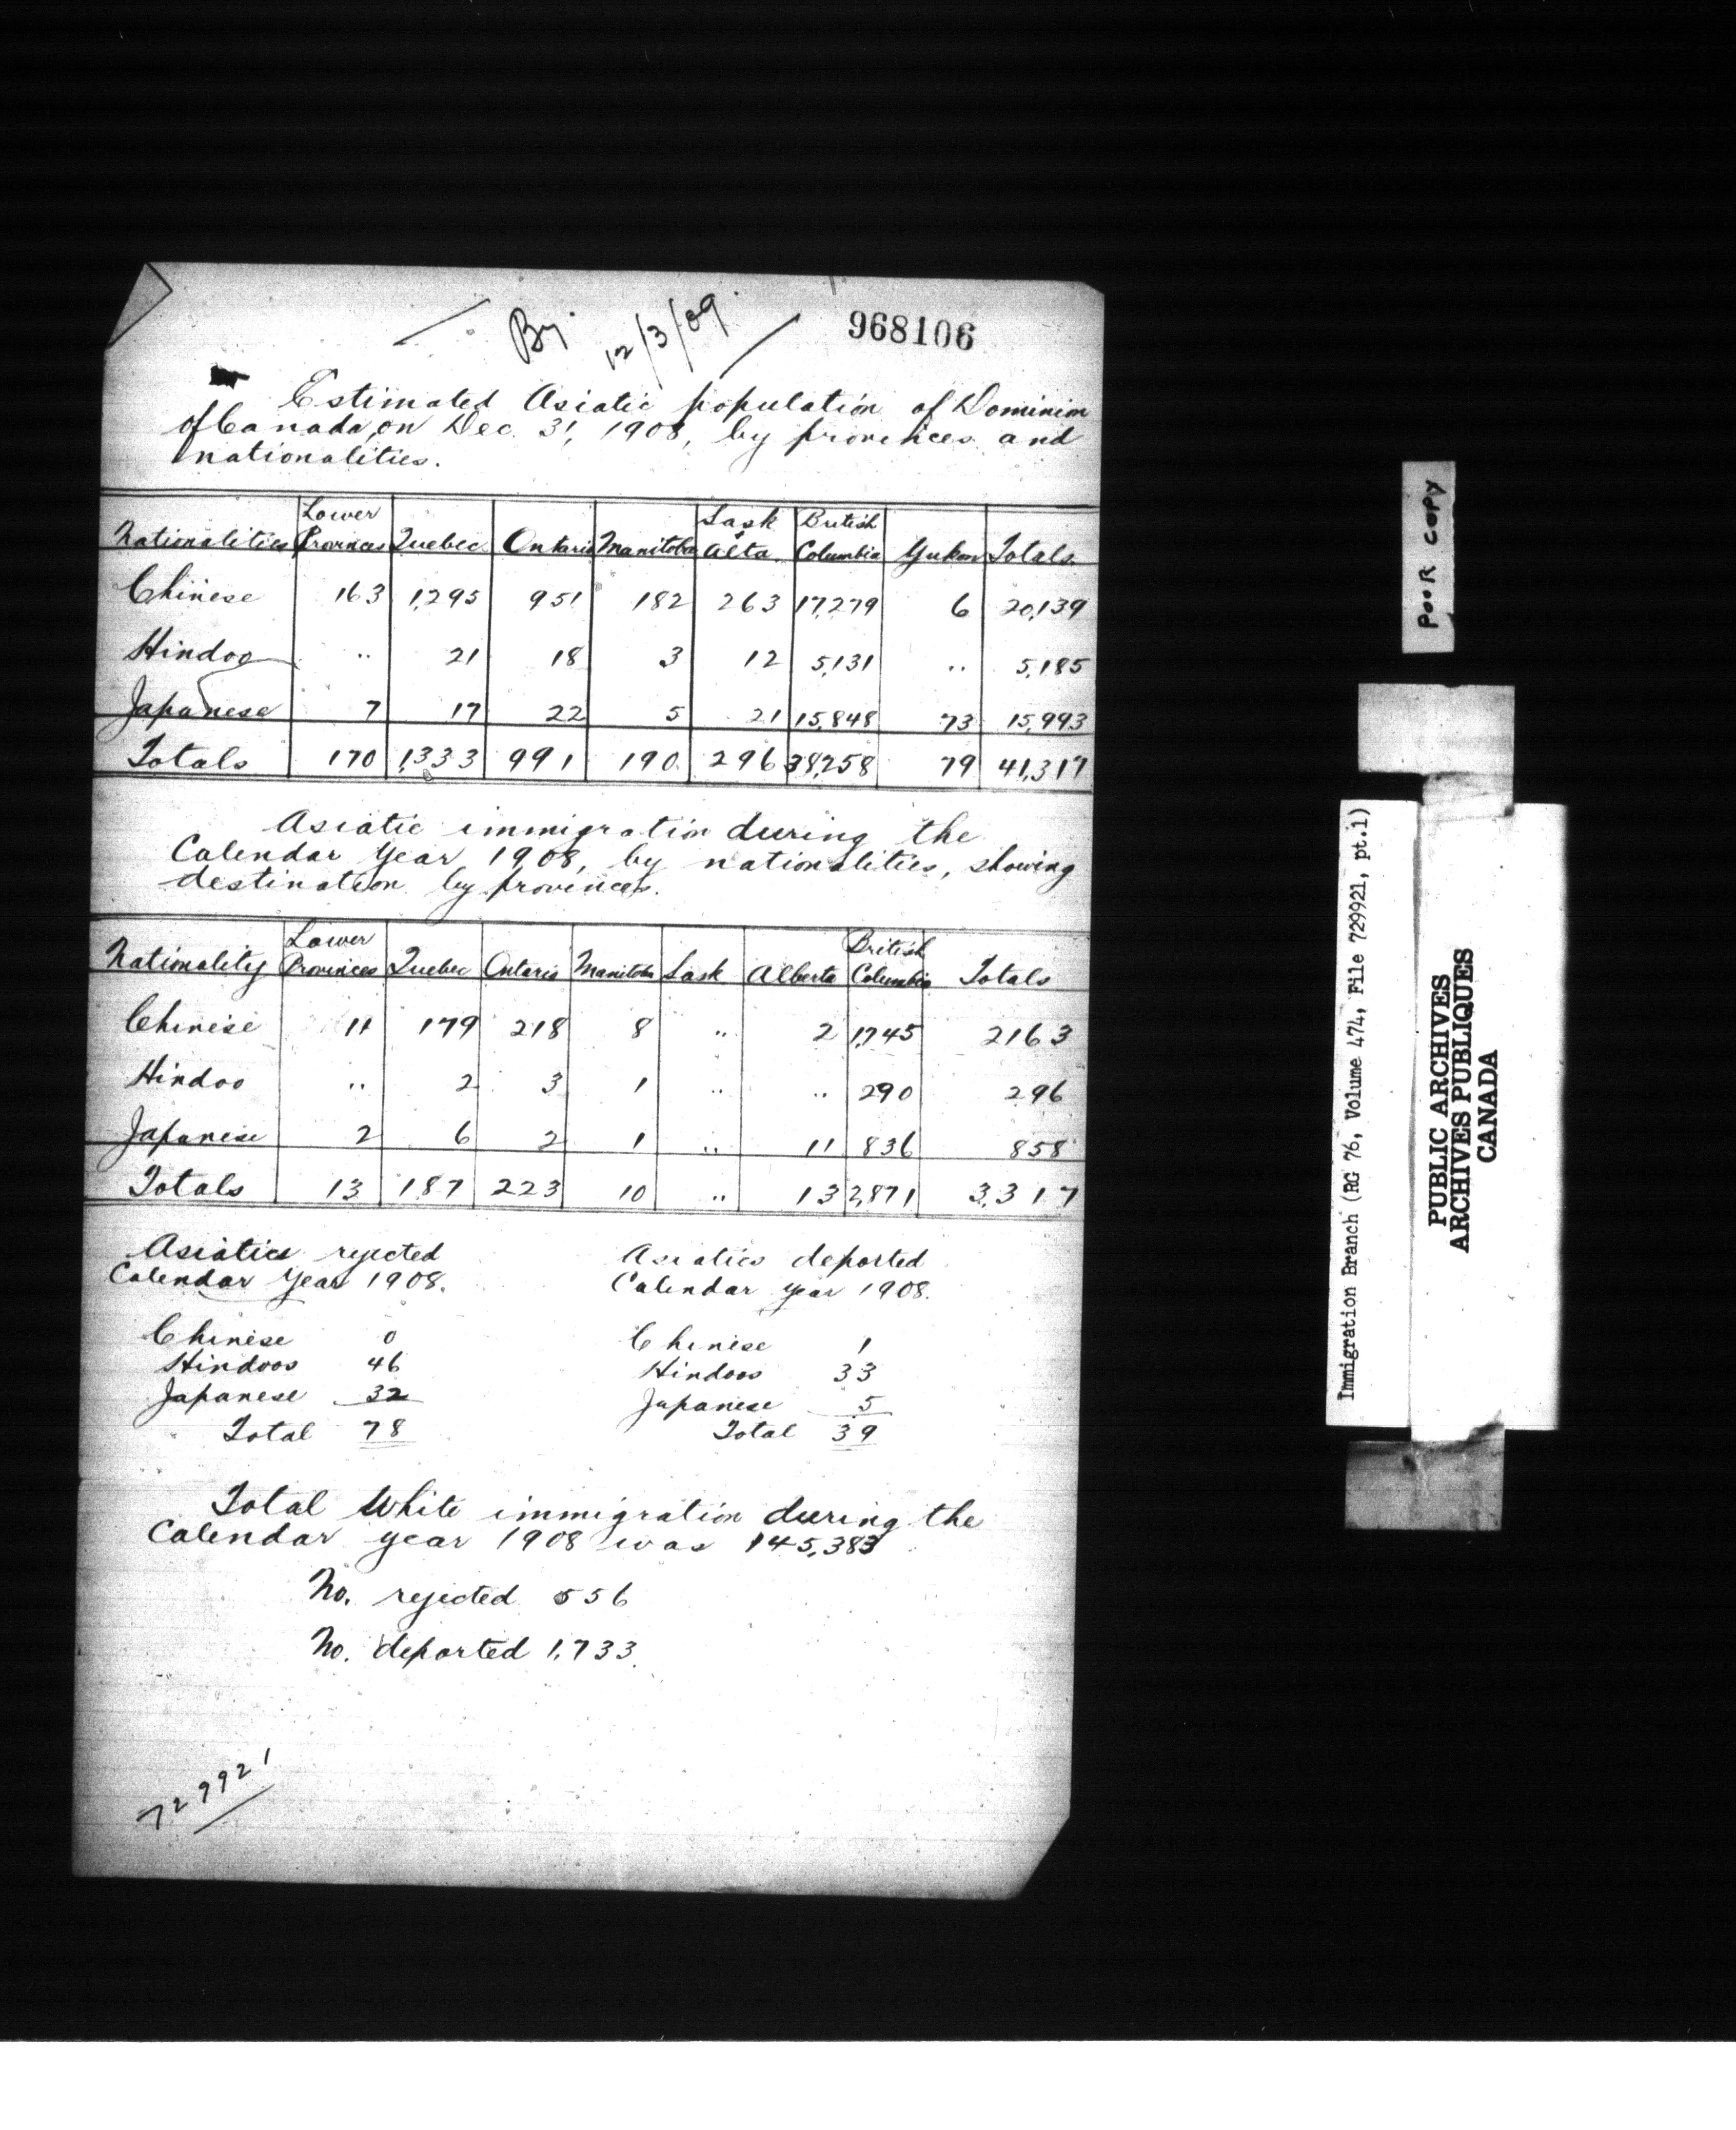 By 12/3/09 968106
Estimated Asiatic population of Dominion
of Canada, on Dec. 31, 1908, by provinces and
nationalities.
Nationalities Lower Provinces Quebec Ontario Manitoba Sask & Alta British Columbia Yukon Totals.
Chinese 163 1,295 951 182 263 17,279 6 20,139
Hindoo .. 21 18 3 12 5,131 .. 5,185
Japanese 7 17 22 5 21 15,848 73 15,993
Totals 170 1,333 991 190 296 38,258 79 41,317
Asiatic immigration during the
Calendar Year 1908, by nationalities, showing
destination by provinces.
Nationality Lower Provinces Quebec Ontario Manitoba Sask Alberta British Columbia Totals
Chinese 11 179 218 8 .. 2 1,745 2163
Hindoo .. 2 3 1 .. .. 290 296
Japanese 2 6 2 1 .. 11 836 858
Totals 13 187 223 10 .. 13 2,871 3,317
Asiatics rejected
Calendar Year 1908.
Chinese 0
Hindoos 46
Japanese 32
Total 78
Asiatics deported
Calendar year 1908.
Chinese 1
Hindoos 33
Japanese 5
Total 39
Total White immigration during the
Calendar year 1908 was 145,383
No. rejected 556
No. deported 1,733.
729921
POOR COPY
Immigration Branch (RG 76, Volume 474, File 729921, pt.1)
PUBLIC ARCHIVES
ARCHIVES PUBLIQUES
CANADA